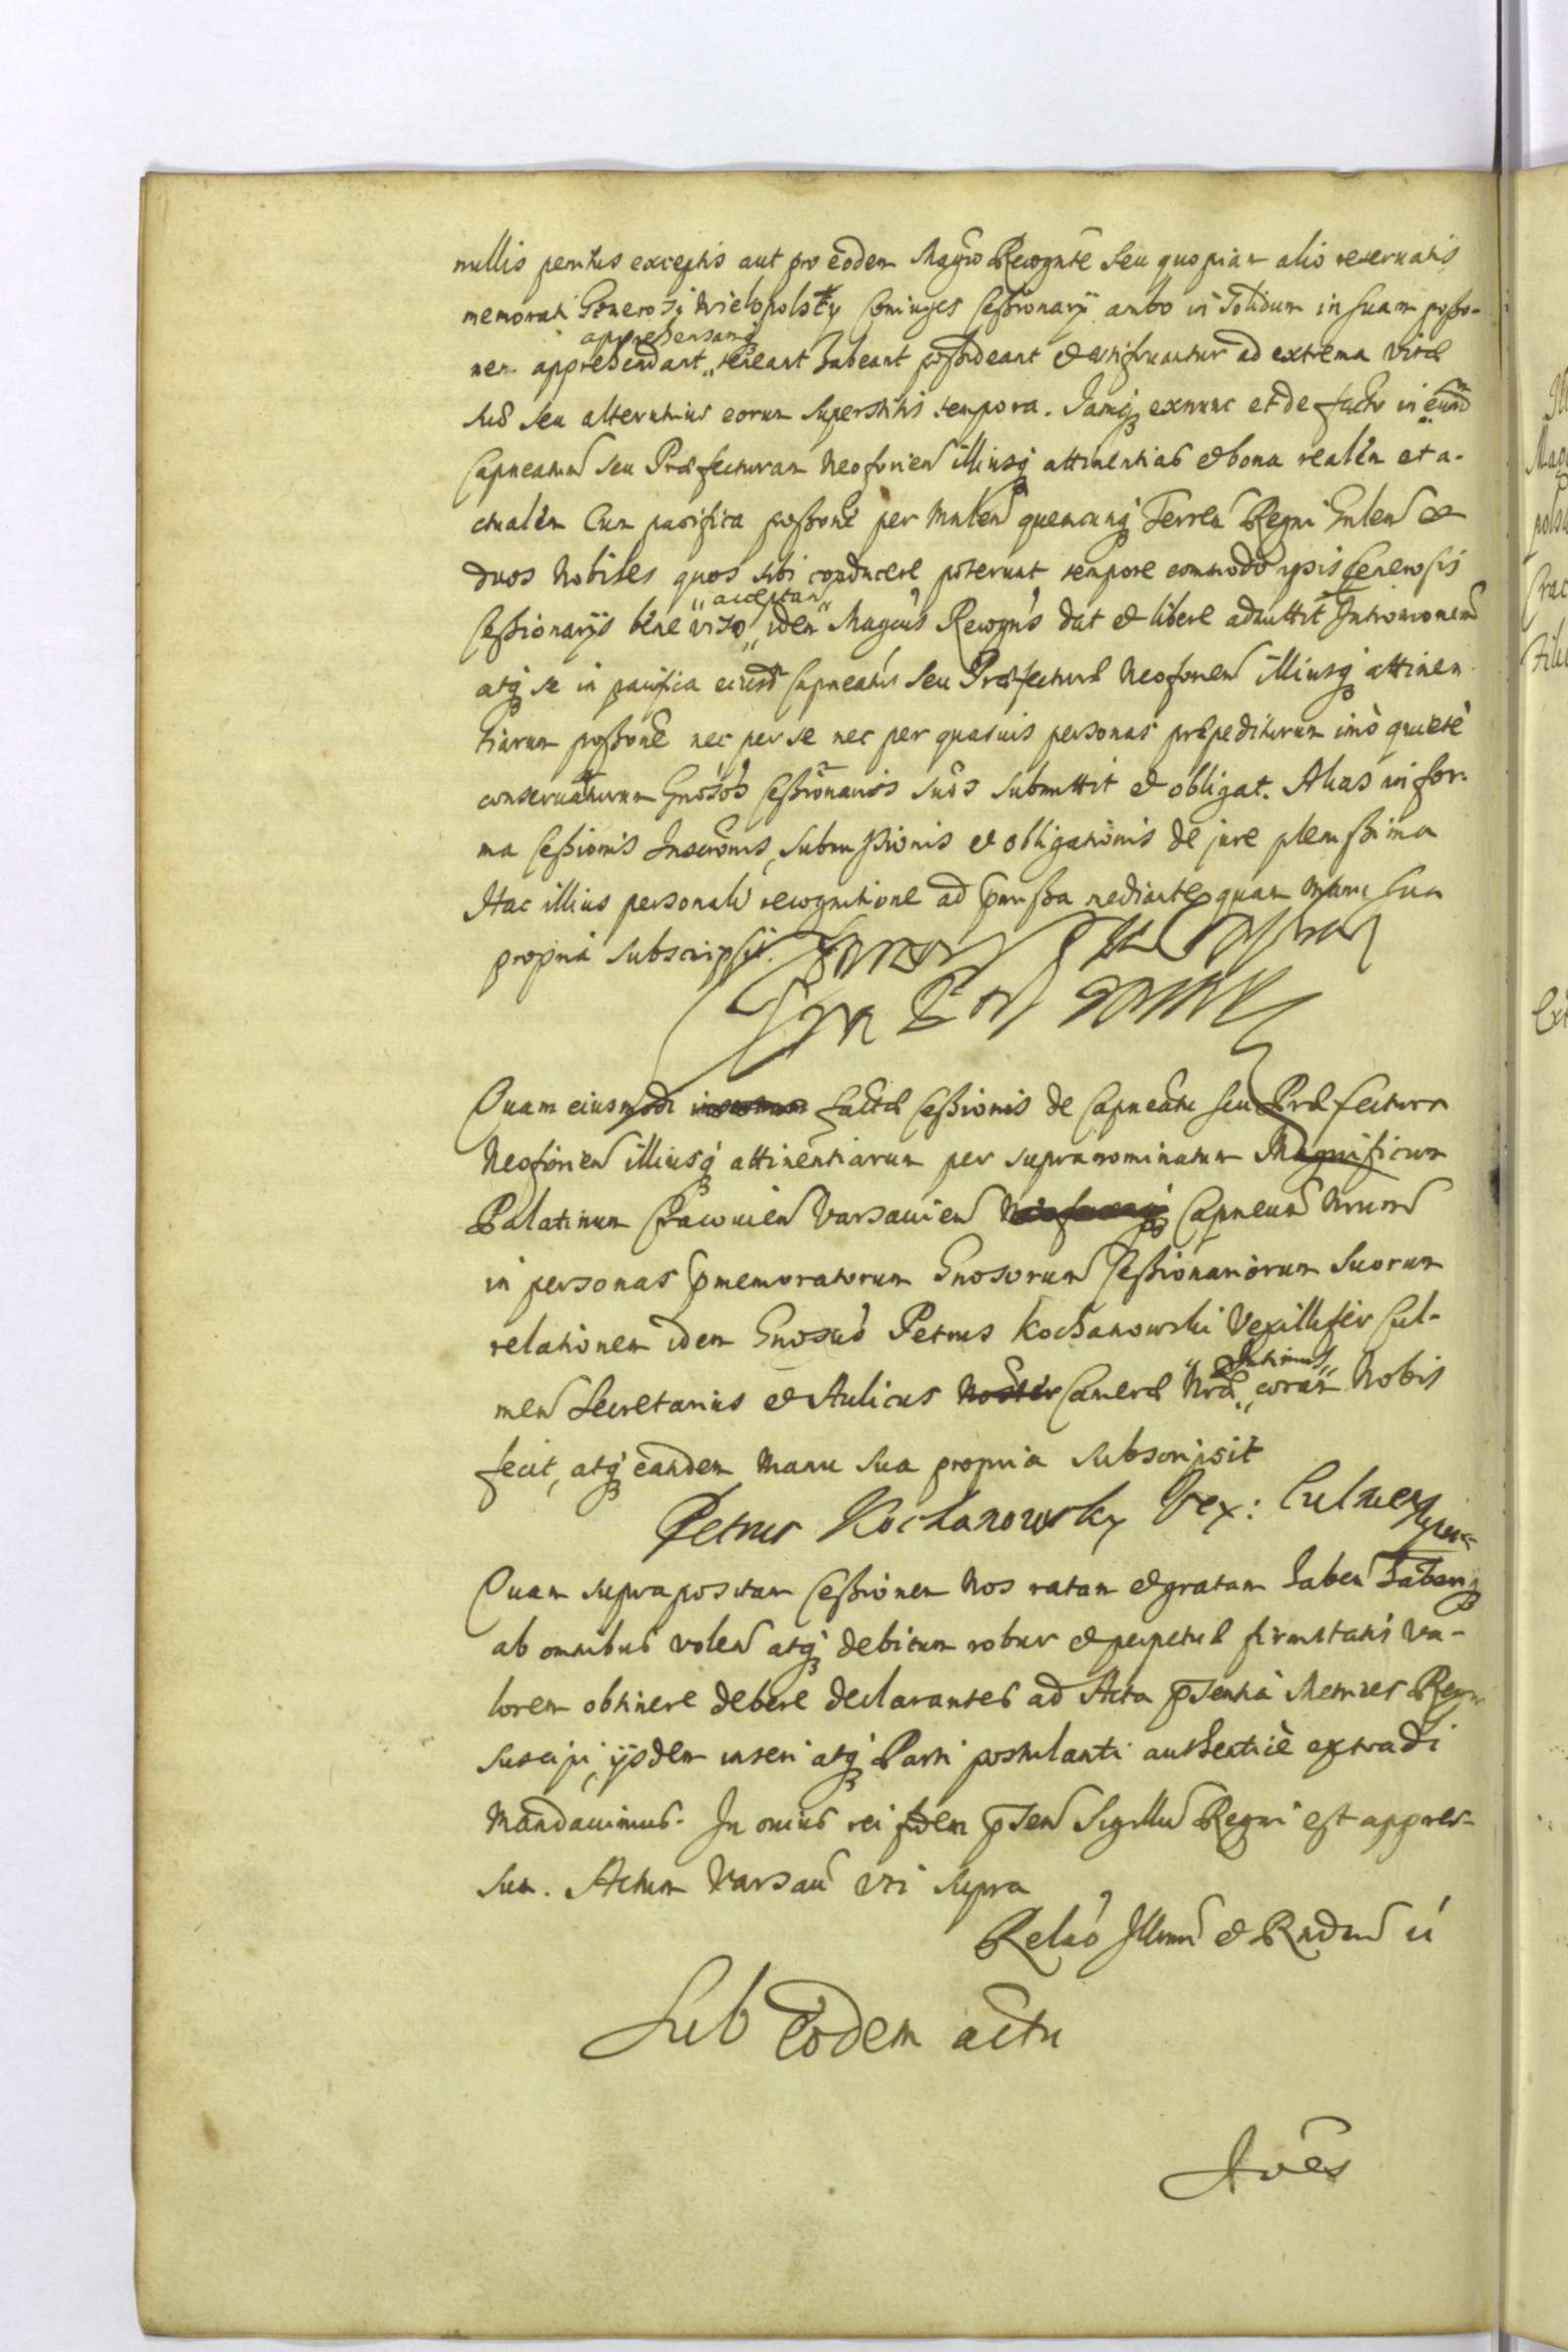 nullis penitus exceptis aut pro eodem Magco Recognte seu quopiam alio reservatis
memorati Generosi Wielopolsky Coniuges Cessionarij ambo in solidum in suam posso-
apprehensamq
nem apprehendant, teneant habeant possideant et utifruantur ad extrema vitæ
suæ seu alterutrius eorum superstitis tempora. Iamq exnunc et de facto in eund
Capneatum seu Præfecturam Neoforien illiusq attinentias et bona realem et a-
ctualem cum pacifica possone per Mnlem quemcunq Terrem Regni Gnlem &
duos Nobiles quos sibi conducere poterunt tempore commodo ipsis Generosis
acceptan
Cessionarijs bene viso, idem Magcus Recogns dat et libere admittit Intromonem
atq se in pacifica eiusd Capneatus seu Præfecturæ Neoforien illiusq attinen
tiarum possone nec per se nec per quasuis personas præpediturum imò quietè
conservaturum Gnosos Cessionarios suos submittit et obligat. Alias in for-
ma Cessionis Inscronis, submissionis et obligationis de jure plenissima
Hac illius personali recognitione ad pmissa mediante, quam manu sua
propria subscripsit.
Quam eiusmodi factæ Cessionis de Capneatu seu Præfectura
Neoforien illiusq attinentiarum per supranominatum Magnificum
Palatinum Cracovien Varsavien Capneum Nrum
in personas pmemoratorum Gnosorum Cessionariorum suorum
relationem idem Gnosus Petrus Kochanowski Vexillifer Cul-
Intimus
men Secretarius et Aulicus Noster Cameræ Nræ, coram Nobis
fecit, atq eandem manu sua propria subscripsit
Petrus Kochanowsky Vex: Culmen
Quam suprapositam Cessionem Nos ratam et gratam haben haberiq
ab omnibus volen atq debitum robur et perpetuæ firmitatis va-
lorem obtinere debere declarantes ad Acta psentia Metrices Regn
suscipi, ijsdem inseri atq Parti postulanti authenticè extradi
mandavimus. In cuius rei fidem psen Sigillu Regni est appres-
sum. Actum Varsau uti supra
Relao Illmi et Rndm ú
Sub Eodem actu